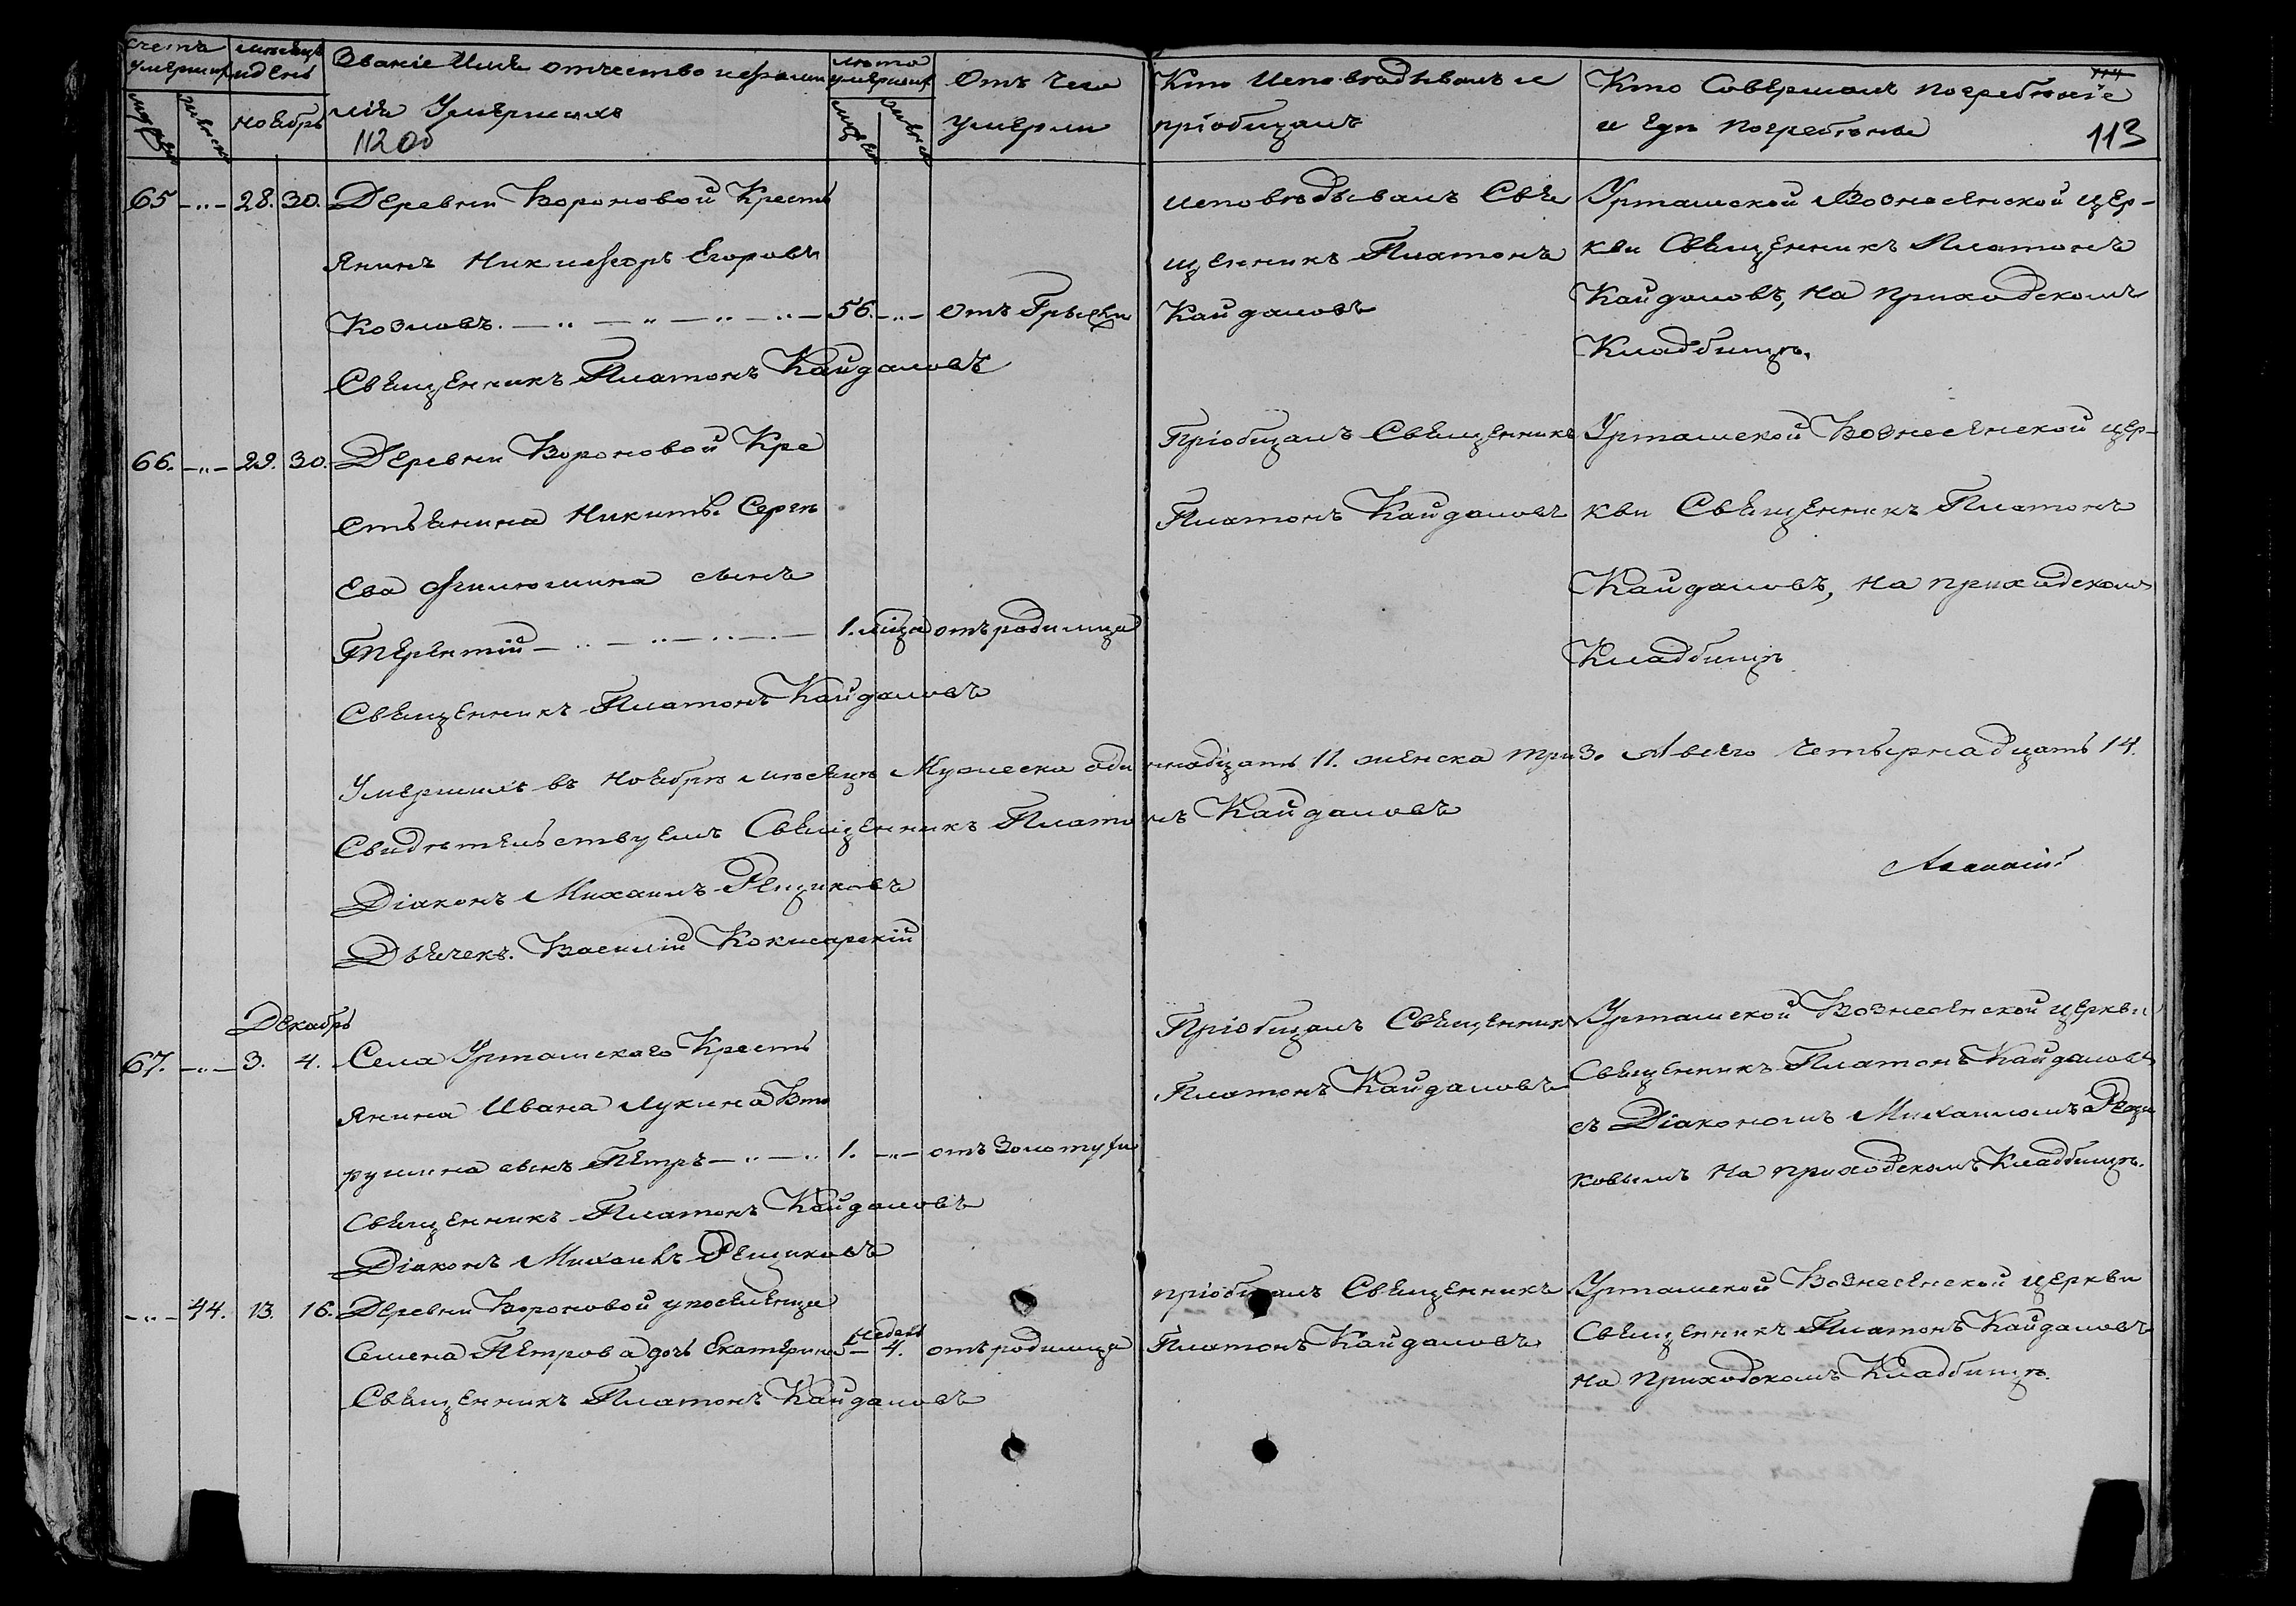 Счетъ умершихъ
Мѣсяцъ и день
Званіе Имя отчество и фами
лія Умершихъ
11200
Лѣта умершихъ
Отъ чего
умерли
Кто Исповѣдывалъ и
пріобщалъ
Кто Совершалъ погребеніе
и гдѣ погребены
114
113
Ноябрь
65 — 28. 30. Деревни Вороновой Кресть
янинъ Никифоръ Егоровъ
Козловъ. 56. — отъ Грыжи
Священникъ Платонъ Кайдаловъ
исповѣдывалъ Свя
щенникъ Платонъ
Кайдаловъ
Урташской Вознесенской цер-
кви Священникъ Платонъ
Кайдаловъ, на приходскомъ
Кладбищѣ.
66. — 29. 30. Деревни Вороновой Кре
стьянина Никиты Серге
ева Филюшина сынъ
Терентій — 1. мѣца отъ родимца
Священникъ Платонъ Кайдаловъ
Пріобщалъ Священникъ
Платонъ Кайдаловъ
Урташской Вознесенской цер-
кви Священникъ Платонъ
Кайдаловъ, на приходскомъ
Кладбищѣ
Умершихъ въ Ноябрѣ мѣсяцѣ Мужеска одиннадцать 11. женска три 3. А всего четырнадцать 14.
Свидѣтельствуемъ Священникъ Платонъ Кайдаловъ
Діаконъ Михаилъ Рещиковъ
Дьячекъ. Василій Кокшарскій
Декабрь
67. — 3. 4. Села Урташскаго Кресть
янина Ивана Лукина Вто
рушина сынъ Петръ — 1. — отъ Золотухи
Священникъ Платонъ Кайдаловъ
Діаконъ Михаилъ Рещиковъ
Пріобщалъ Священникъ
Платонъ Кайдаловъ
Урташской Вознесенской церкви
Священникъ Платонъ Кайдаловъ
съ Діакономъ Михаиломъ Рещи
ковымъ На приходскомъ Кладбищѣ.
— 44. 13. 16. Деревни Вороновой у поселенца
Семена Петрова дочь Екатерина — 4. недель отъ родимца
Священникъ Платонъ Кайдаловъ
пріобщалъ Священникъ
Платонъ Кайдаловъ
Урташской Вознесенской церкви
Священникъ Платонъ Кайдаловъ
на приходскомъ Кладбищѣ.